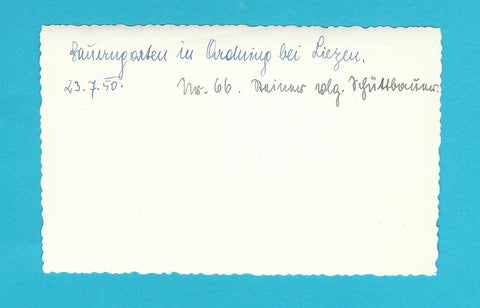 Bauerngarten in Ardning bei Liezen.
23.7.50. Nr. 66. Steiner vlg. Schüttbauer.